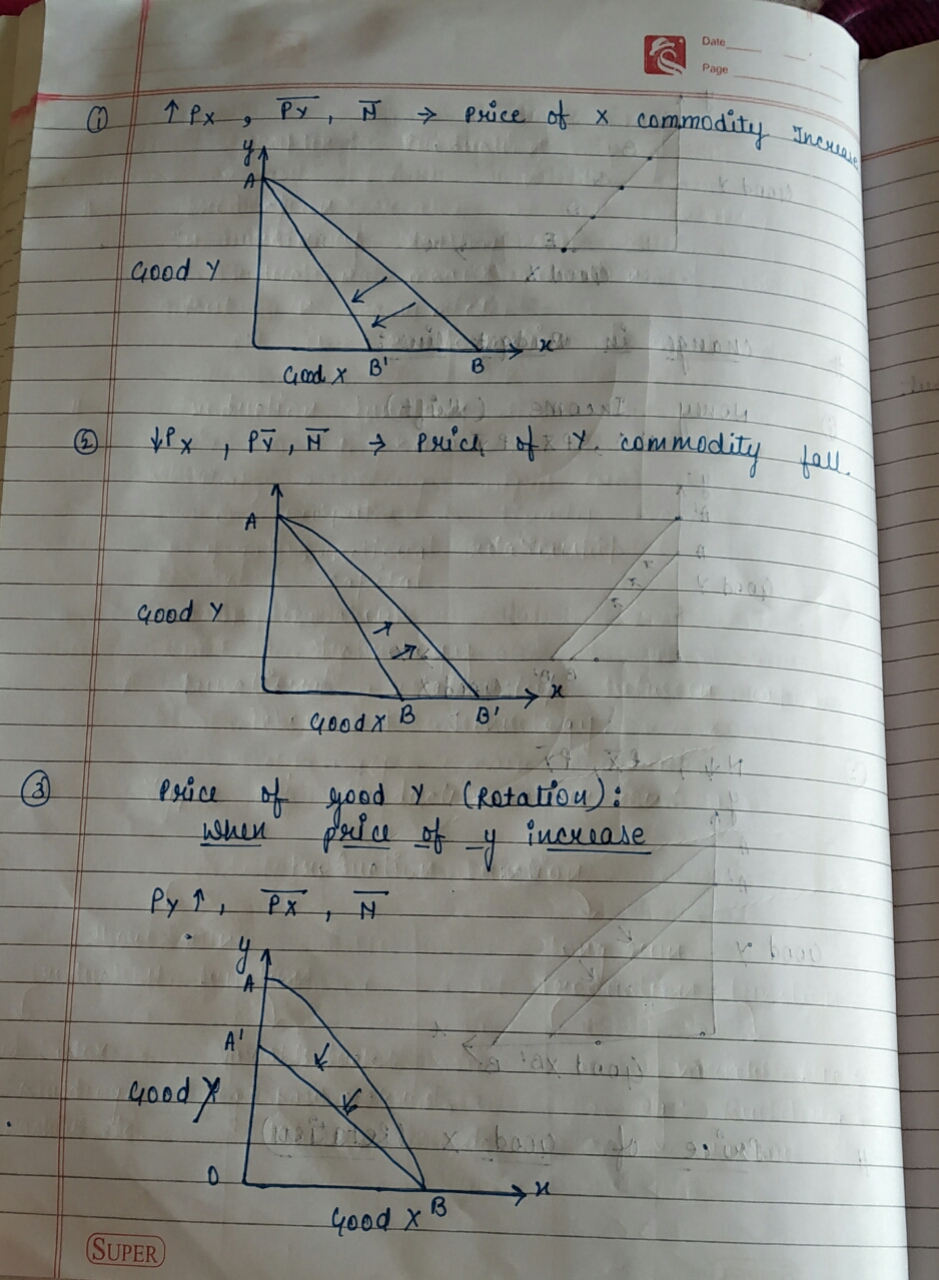 Date
Page
① ↑ Px , P̅y̅ , N̅ → Price of x commodity Increase
y
A
Good Y
Good X B' B x
② ↓Px , PY̅ , N̅ → Price of Y. commodity fall.
A
Good Y
Good X B B' x
③ Price of good Y (Rotation):
when price of y increase
Py ↑ , P̅X̅ , N̅
y
A
A'
Good Y
O x
Good X B
SUPER